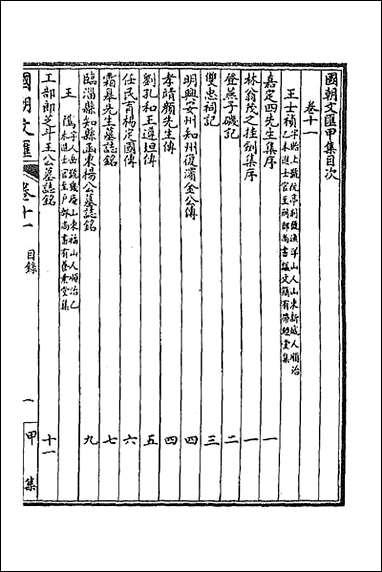 國朝文匯甲集目次
卷十一
王士禎 字貽上號阮亭別號漁洋山人山東新城人順治乙未進士官至刑部尚書諡文簡有帶經堂集
嘉定四先生集序 一
林翁茂之挂劍集序 一
登燕子磯記 二
雙忠祠記 三
明興安州知州復濱金公傳 四
孝靖顏先生傳 四
劉孔和王遵坦傳 五
任民育楊定國傳 六
霜皋先生墓誌銘 七
臨淄縣知縣函東楊公墓誌銘 九
王 隲 字人岳號山東福山人順治乙未進士官至戶部尚書有堂集
工部郎芝斗王公墓誌銘 十一
國朝文匯 卷十一 目錄 一 甲集